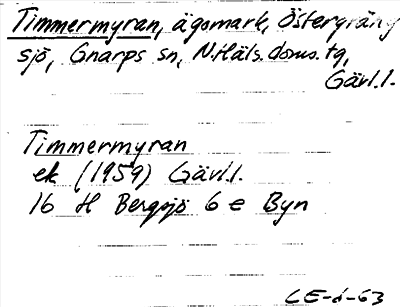 Timmermyran, ägomark, Östergräng
sjö, Gnarps sn, N.Häls.doms.tg,
Gävl.l.
Timmermyran
ek (1959) Gävl.l.
16 H Bergsjö 6 e Byn
CE-d-63